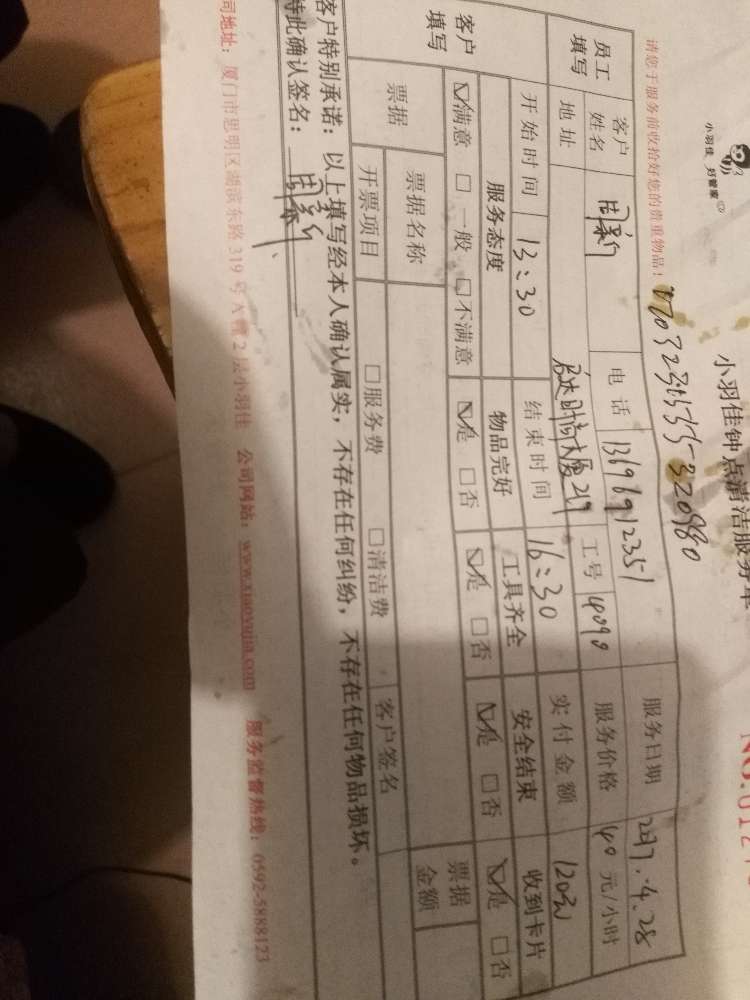 小羽佳 好管家
小羽佳钟点清洁服务单
请您于服务前收拾好您的贵重物品！
员工填写
客户姓名
电话 13696912351
服务日期 2017.4.28
地址
工号 4090
服务价格 40 元/小时
开始时间 13:30
结束时间 16:30
实付金额 120元
客户填写
服务态度 物品完好 工具齐全 安全结束 收到卡片
☑满意 □一般 □不满意 ☑是 □否 ☑是 □否 ☑是 □否 ☑是 □否
票据 票据名称 票据金额
开票项目 □服务费 □清洁费 客户签名
客户特别承诺：以上填写经本人确认属实，不存在任何纠纷，不存在任何物品损坏。
特此确认签名：
司地址：厦门市思明区湖滨东路319号A幢2层小羽佳 公司网站：www.xiaoyujia.com 服务监督热线：0592-5888123